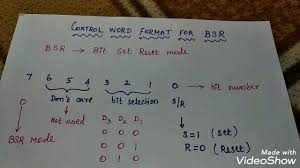 CONTROL WORD FORMAT FOR BSR
BSR → Bit Set Reset mode
7 6 5 4 3 2 1 0 → bit number
0 Don't care bit selection S/R
↓ Not used D3 D2 D1
BSR mode 0 0 0 S=1 (Set)
0 0 1 R=0 (Reset)
Made with
VideoShow